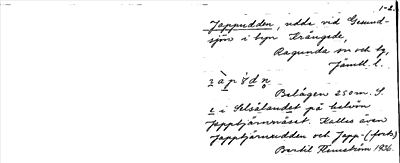 1-2.
Jappudden, udde vid Gesund-
sjön i byn Krångede,
Ragunda sn och tg,
Jämtl. l.
Belägen 250 m. S.
i Selsålandet på
Japptjärnnäset. Kallas även
Japptjärnudden och Japp- (fork)
Bertil Flemström 1936.